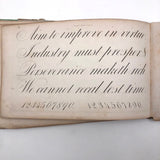 Aim to improve in virtue
Industry must prosper
Perseverance maketh
We cannot recal lost tim
1234567890 1234567890